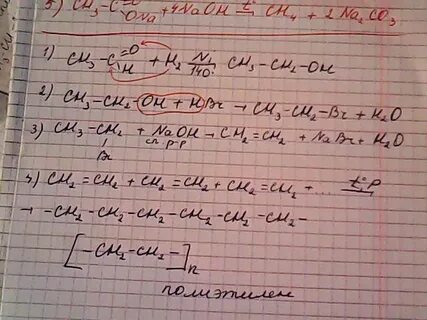 5) CH₃-C(=O)ONa + 4NaOH →(t) CH₄ + 2Na₂CO₃
1) CH₃-C(=O)H + H₂ →(Ni, 140°) CH₃-CH₂-OH
2) CH₃-CH₂-OH + HBr → CH₃-CH₂-Br + H₂O
3) CH₃-CH₂ + NaOH → CH₂=CH₂ + NaBr + H₂O
Br сп. р-р
4) CH₂=CH₂ + CH₂=CH₂ + CH₂=CH₂ + ... t°, P
→ -CH₂-CH₂-CH₂-CH₂-CH₂-CH₂-
[-CH₂-CH₂-]n
полиэтилен